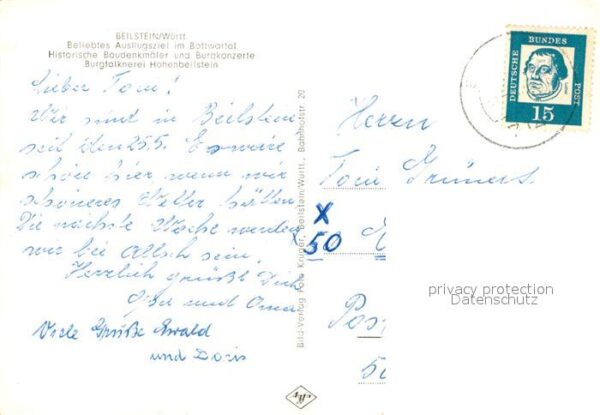 BEILSTEIN/Württ
Beliebtes Ausflugsziel im Bottwartal
Historische Baudenkmäler und Burgkonzerte
Burgfalknerei Hohenbeilstein
Lieber Toni!
Wir sind in Beilstein
seit den 25.5. Es wäre
schön hier wenn wir
schöneres Wetter hätten
Die nächste Woche werden
wir bei sein.
Herzlich grüßt Dich
Opa und Oma
Viele Grüße Ewald
und Doris
Bild-Verlag Foto Krüger, Beilstein/Württ., Bahnhofstr. 20
DEUTSCHE BUNDESPOST
15
Herrn
Toni
X
50
Pos
50
privacy protection
Datenschutz